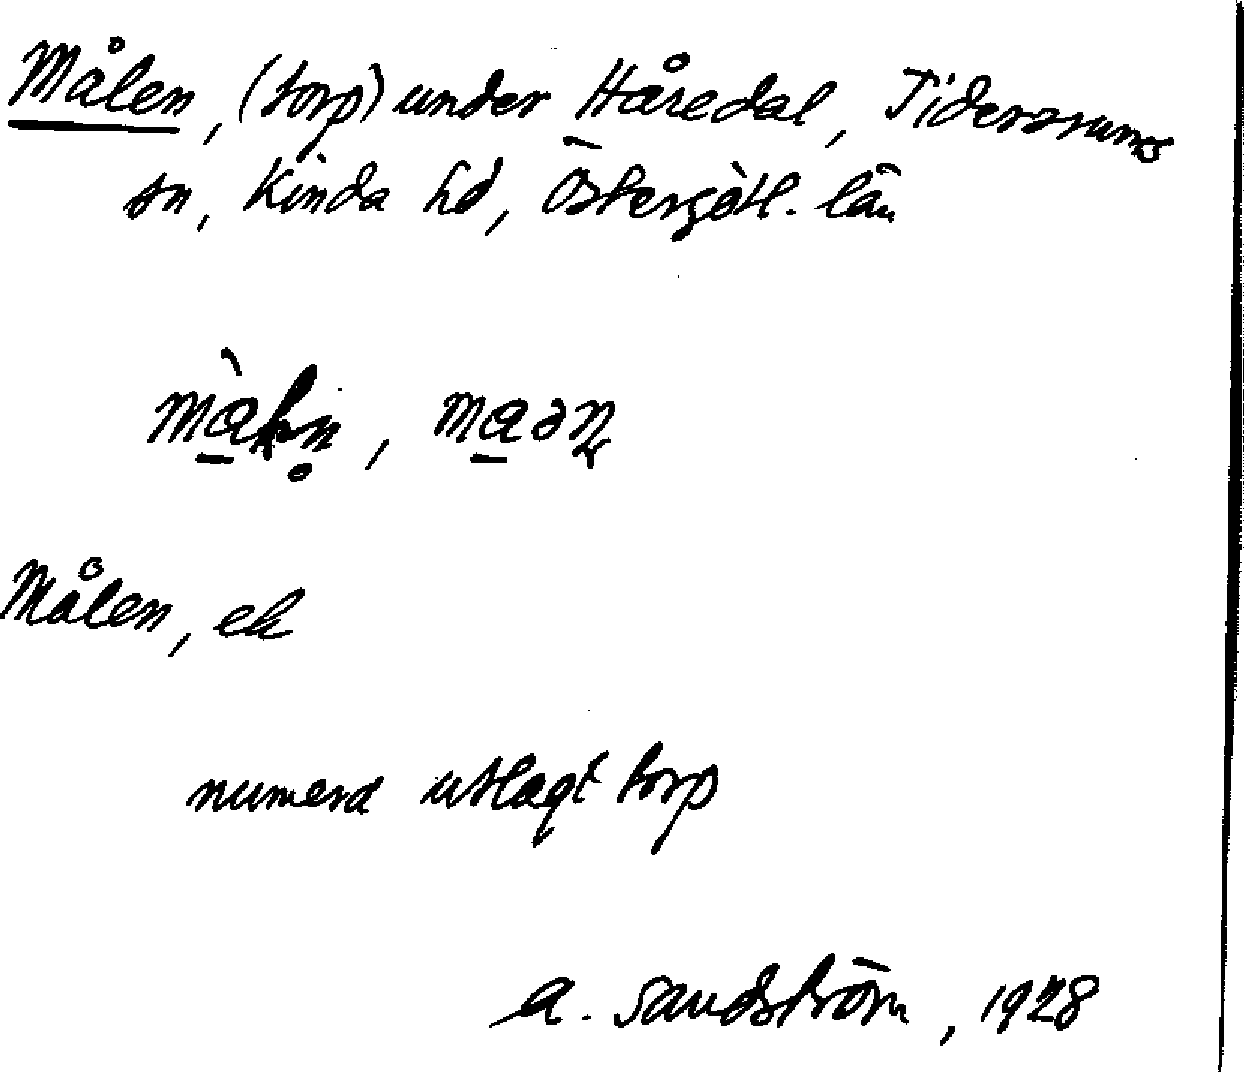 Målen, (torp) under Håredal, Tidersrums
sn, Kinda hd, Östergötl. län
Målen, ek
numera utlagt torp
A. Sandström, 1928